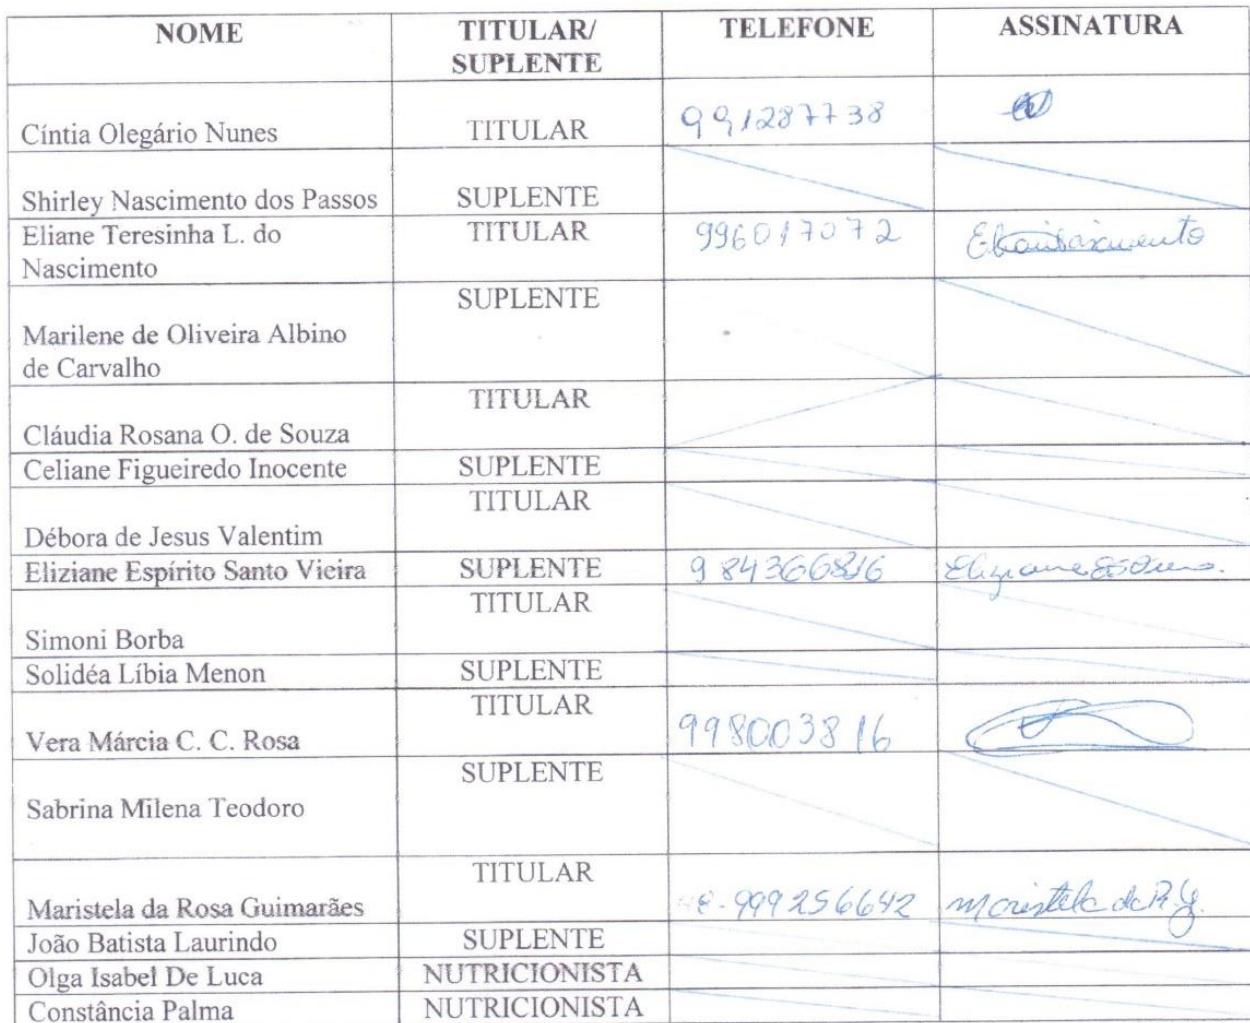 NOME TITULAR/ SUPLENTE TELEFONE ASSINATURA
Cíntia Olegário Nunes TITULAR 991287738
Shirley Nascimento dos Passos SUPLENTE
Eliane Teresinha L. do TITULAR 996017072
Nascimento
SUPLENTE
Marilene de Oliveira Albino
de Carvalho
TITULAR
Cláudia Rosana O. de Souza
Celiane Figueiredo Inocente SUPLENTE
TITULAR
Débora de Jesus Valentim
Eliziane Espírito Santo Vieira SUPLENTE 984366816
TITULAR
Simoni Borba
Solidéa Líbia Menon SUPLENTE
TITULAR
Vera Márcia C. C. Rosa 998003816
SUPLENTE
Sabrina Milena Teodoro
TITULAR
Maristela da Rosa Guimarães 999256642 Maristela da R. G.
João Batista Laurindo SUPLENTE
Olga Isabel De Luca NUTRICIONISTA
Constância Palma NUTRICIONISTA